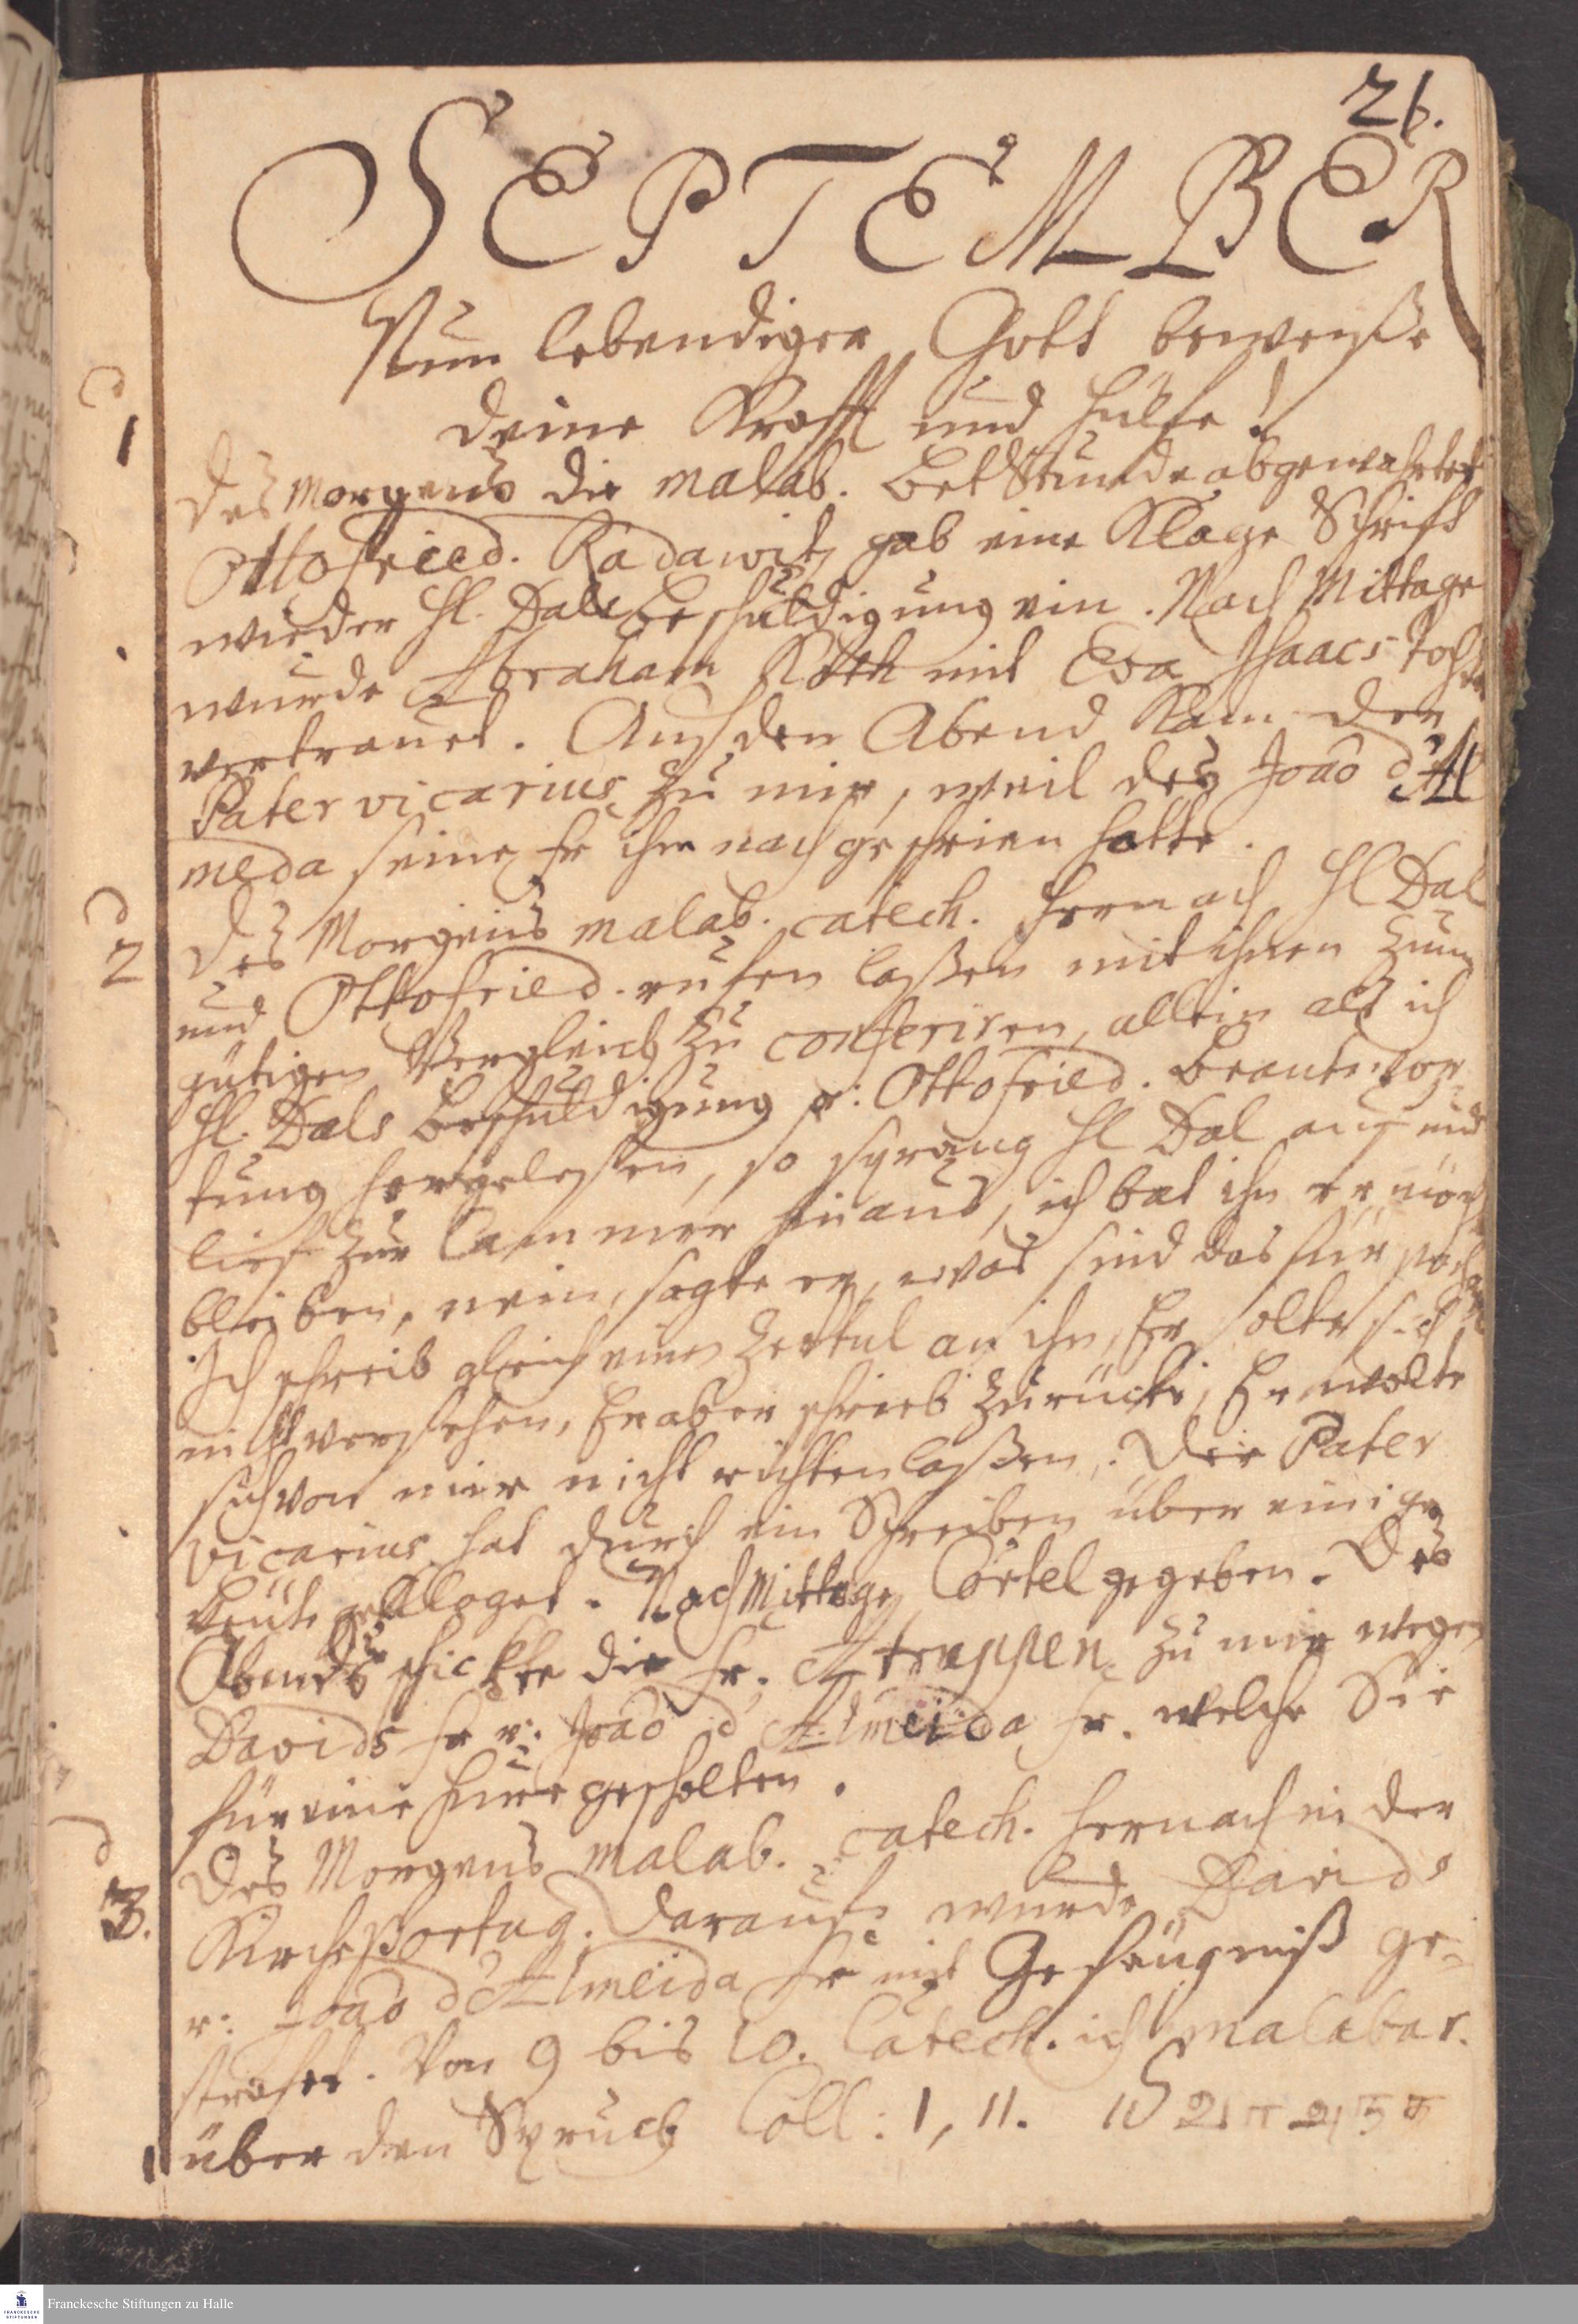 26.
SEPTEMBER
Nun lebendiger Gott beweiße
deine Krafft und Hülfe!
1
Des Morgens die malab. BetStunde abgewartet
Ottofried. Radawitz gab eine Klage Schrifft
wieder Hl. Dals Beschuldigung ein. Nach Mittage
wurde Abraham Köth mit Eva Isaacs Tochter
vertrauet. Auf den Abend kam der
Pater vicarius zu mir, weil des Joaõ d'Al
meda seine Fr ihm nachgeschrien hatte.
2
Des Morgens malab. catech. Hernach Hl Dal
und Ottofried. rufen laßen mit ihnen zum
gütigen Vergleich zu conferiren, allein als ich
Hl. Dals Beschuldigung u: Ottofried. Beantwor-
tung hergelesen, so sprang Hl Dal auf und
lief zur Cammer hinaus, ich bat ihn er möcht
bleiben, nein, sagte er, was sind das für
Ich schreib gleich einen Zettul an ihn, Er solte sich
nicht versehen, Er aber schrieb zurücke, Er wolte
sich von mir nicht richten laßen. Der Pater
vicarius hat durch ein Schreiben über einige
Leute geklaget. NachMittage Cörtel gegeben. Des
Abends schickte die Fr. Attruppen zu mir wegen
Davids Fr u: Joaõ d'Almeida Fr. welche Sie
für eine Hure gescholten.
3.
Des Morgens malab. catech. Hernach in der
Kirche Portug. Darauf wurde Davids
u: Joaõ d'Almeida Fr mit Gefängniß ge-
strafet. Von 9 bis 10. Catech. ich malabar.
über den Spruch Coll: 1, 11.
Franckesche Stiftungen zu Halle